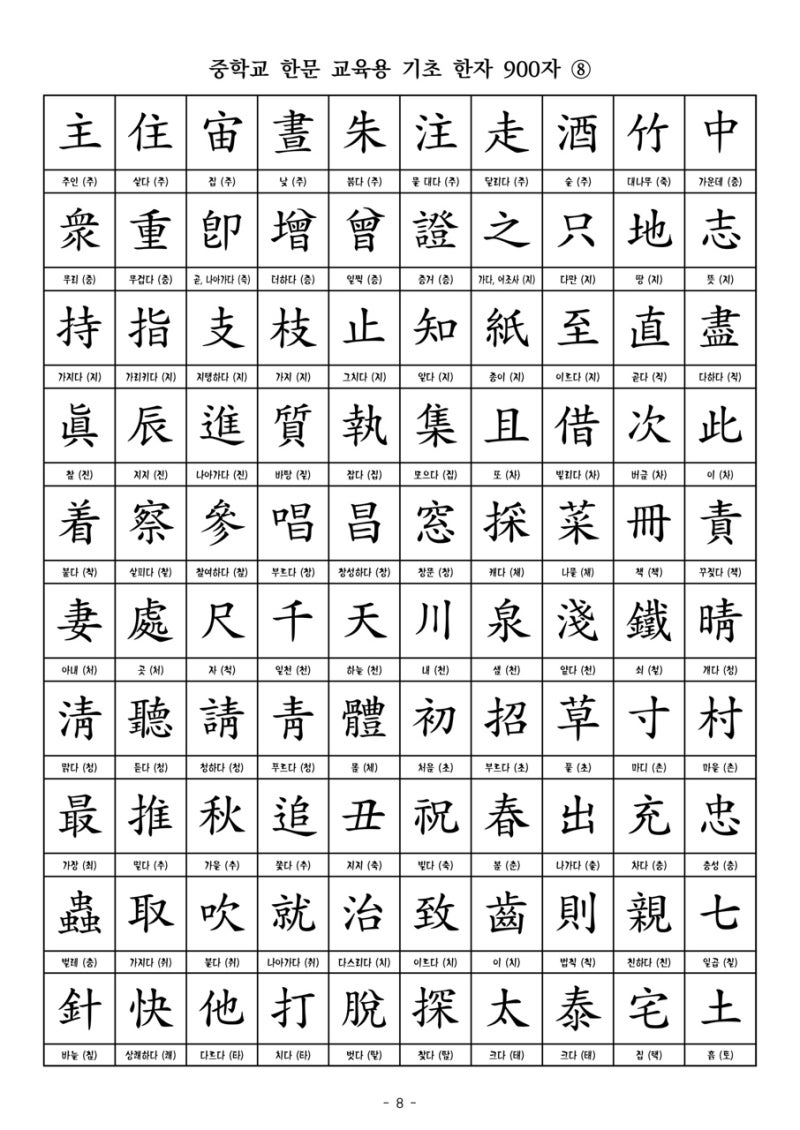 중학교 한문 교육용 기초 한자 900자 ⑧
主 住 宙 晝 朱 注 走 酒 竹 中
주인 (주) 살다 (주) 집 (주) 낮 (주) 붉다 (주) 물 대다 (주) 달리다 (주) 술 (주) 대나무 (죽) 가운데 (중)
衆 重 卽 增 曾 證 之 只 地 志
무리 (중) 무겁다 (중) 곧, 나아가다 (즉) 더하다 (증) 일찍 (증) 증거 (증) 가다, 어조사 (지) 다만 (지) 땅 (지) 뜻 (지)
持 指 支 枝 止 知 紙 至 直 盡
가지다 (지) 가리키다 (지) 지탱하다 (지) 가지 (지) 그치다 (지) 알다 (지) 종이 (지) 이르다 (지) 곧다 (직) 다하다 (직)
眞 辰 進 質 執 集 且 借 次 此
참 (진) 지지 (진) 나아가다 (진) 바탕 (질) 잡다 (집) 모으다 (집) 또 (차) 빌리다 (차) 버금 (차) 이 (차)
着 察 參 唱 昌 窓 採 菜 冊 責
붙다 (착) 살피다 (찰) 참여하다 (참) 부르다 (창) 창성하다 (창) 창문 (창) 캐다 (채) 나물 (채) 책 (책) 꾸짖다 (책)
妻 處 尺 千 天 川 泉 淺 鐵 晴
아내 (처) 곳 (처) 자 (척) 일천 (천) 하늘 (천) 내 (천) 샘 (천) 얕다 (천) 쇠 (철) 개다 (청)
淸 聽 請 靑 體 初 招 草 寸 村
맑다 (청) 듣다 (청) 청하다 (청) 푸르다 (청) 몸 (체) 처음 (초) 부르다 (초) 풀 (초) 마디 (촌) 마을 (촌)
最 推 秋 追 丑 祝 春 出 充 忠
가장 (최) 밀다 (추) 가을 (추) 쫓다 (추) 지지 (축) 빌다 (축) 봄 (춘) 나가다 (출) 차다 (충) 충성 (충)
蟲 取 吹 就 治 致 齒 則 親 七
벌레 (충) 가지다 (취) 불다 (취) 나아가다 (취) 다스리다 (치) 이르다 (치) 이 (치) 법칙 (칙) 친하다 (친) 일곱 (칠)
針 快 他 打 脫 探 太 泰 宅 土
바늘 (침) 상쾌하다 (쾌) 다르다 (타) 치다 (타) 벗다 (탈) 찾다 (탐) 크다 (태) 크다 (태) 집 (택) 흙 (토)
- 8 -